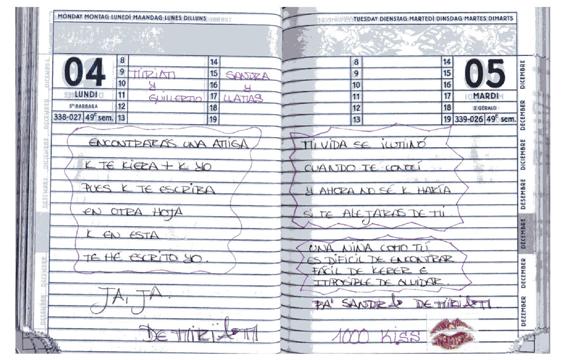 MONDAY MONTAG LUNEDÌ MAANDAG LUNES DILLUNS
04
LUNDI
Sᵗᵉ BARBARA
338-027 49ᵉ sem.
8
9
10
11
12
13
14
15
16
17
18
19
MIRIAM
Y
GUILLERMO
SANDRA
Y
ENCONTRARAS UNA AMIGA
K TE KIERA + K YO
PUES K TE ESCRIBA
EN OTRA HOJA
K EN ESTA
TE HE ESCRITO YO.
JA, JA.
DE
TUESDAY DIENSTAG MARTEDÌ DINSDAG MARTES DIMARTS
8
9
10
11
12
13
14
15
16
17
18
19
05
MARDI
S. GÉRALD
339-026 49ᵉ sem.
MI VIDA SE ILUMINÓ
CUANDO TE CONOCÍ
Y AHORA NO SÉ K HARÍA
SI TE ALEJARAS DE MI
UNA NIÑA COMO TÚ
ES DIFICIL DE ENCONTRAR
FÁCIL DE KERER E
IMPOSIBLE DE OLVIDAR.
PA' DE
1000 KISS
DECEMBRE
DICEMBRE
DEZEMBER
DECEMBER